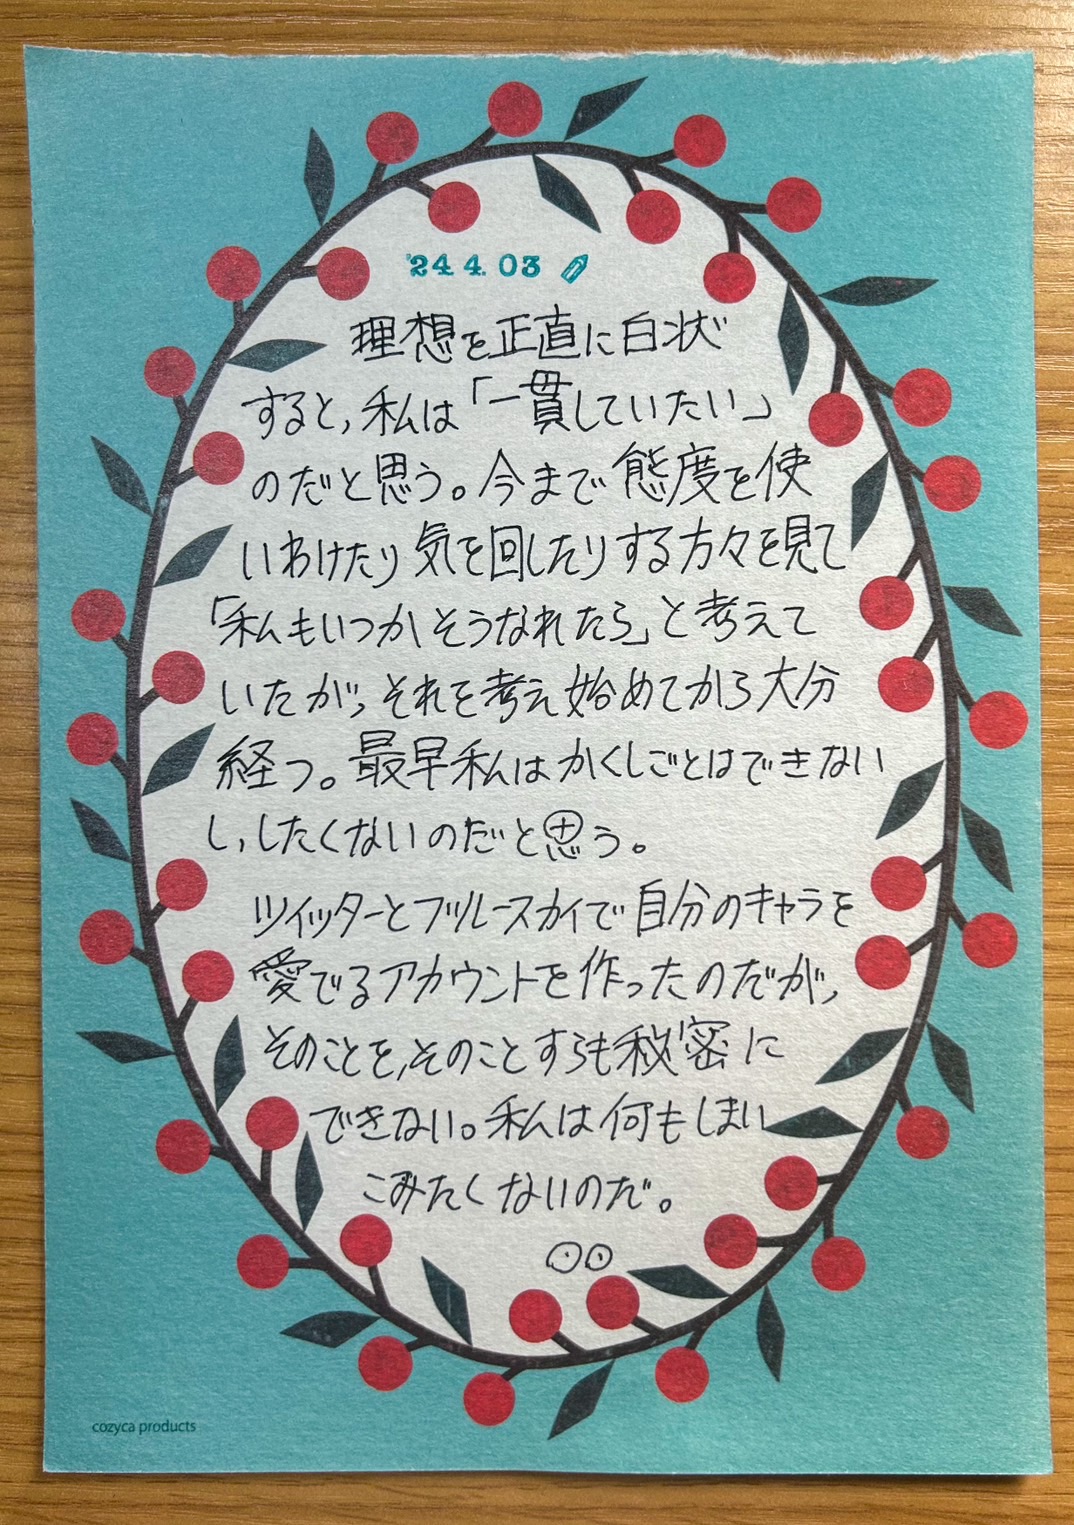 '24. 4. 03
理想を正直に白状
すると,私は「一貫していたい」
のだと思う。今まで態度を使
いわけたり気を回したりする方々を見て
「私もいつかそうなれたら」と考えて
いたが,それを考え始めてから大分
経つ。最早私はかくしごとはできない
し,したくないのだと思う。
ツイッターとブルースカイで自分のキャラを
愛でるアカウントを作ったのだが,
そのことを,そのことすらも秘密に
できない。私は何もしまい
こみたくないのだ。
cozyca products